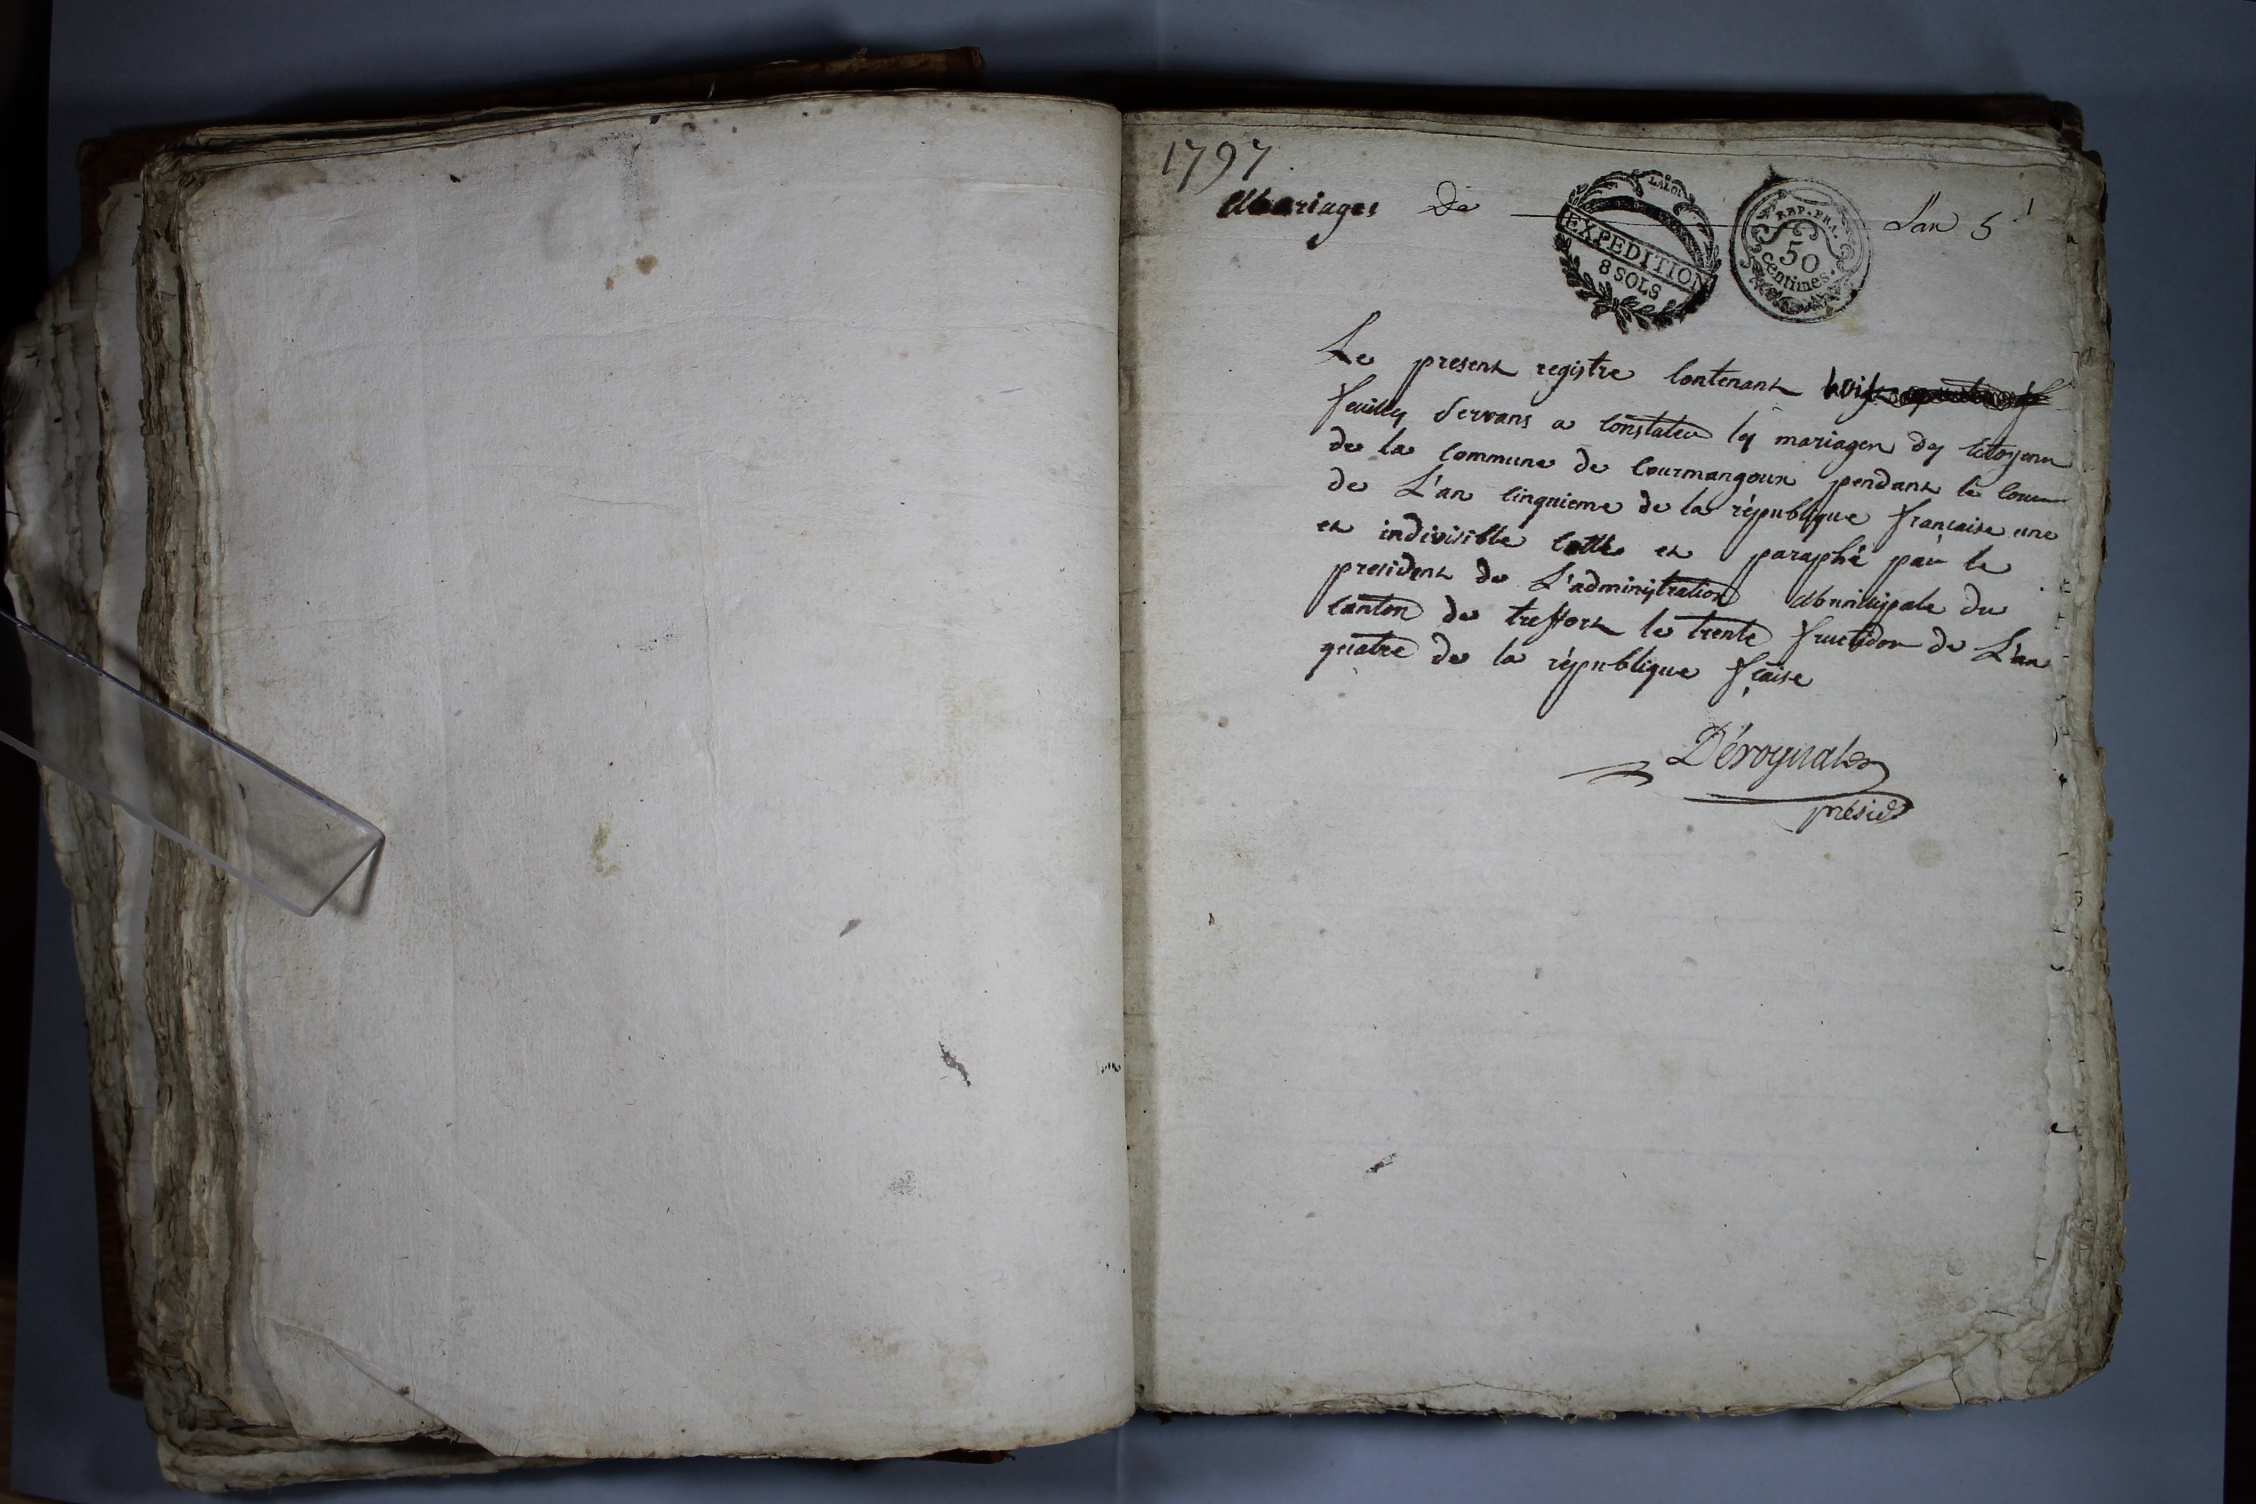 1797
Mariages De L'an 5
LA LOI
EXPEDITION
8 SOLS
REP. FRA.
50
centimes.
Le present registre Contenant
feuilles Servans a Constater les mariages des Citoyens
de la Commune de Courmangoux pendant le Cours
de L'an Cinquieme de la république francaise une
et indivisible Cotté et paraphé par le
president de L'administration Municipale du
Canton de treffort le trente fructidor de L'an
quatre de la république fçaise
présid